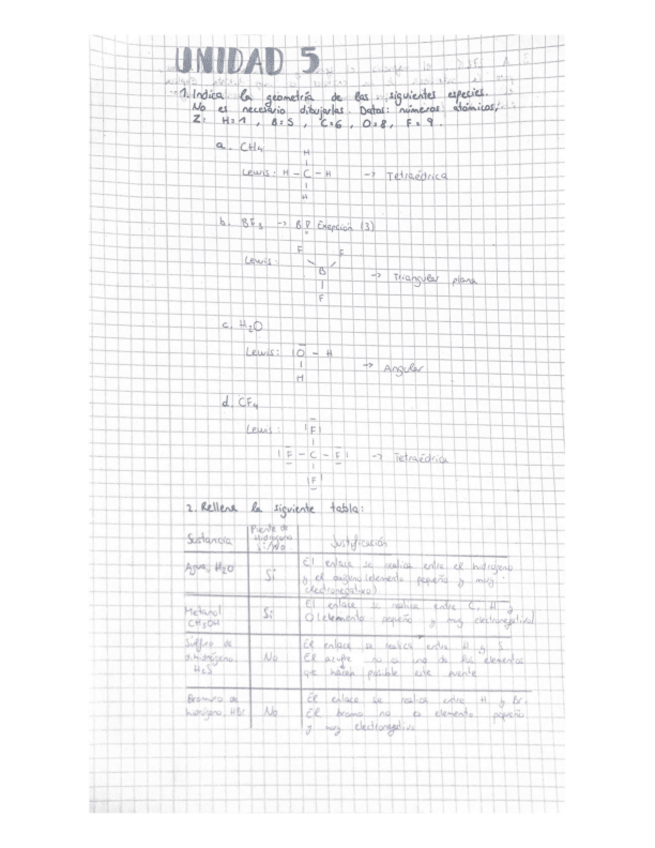 UNIDAD 5
1. Indica la geometría de las siguientes especies.
No es necesario dibujarlas. Datos: números atómicos;
Z: H=1, B=5, C=6, O=8, F=9.
a. CH4
H
Lewis: H - C - H → Tetraédrica
H
b. BF3 → Excepción (3)
F F
Lewis:
B → Triangular plana
F
c. H2O
Lewis: |O - H
H → Angular
d. CF4
Lewis: |F|
|F - C - F| → Tetraédrica
|F|
2. Rellena la siguiente tabla:
Sustancia Puente de hidrógeno Sí/No Justificación
Agua, H2O Sí El enlace se realiza entre el hidrógeno
y el oxígeno (elemento pequeño y muy
electronegativo)
Metanol CH3OH Sí El enlace se realiza entre C, H y
O (elemento pequeño y muy electronegativo)
Sulfuro de H2S No El enlace se realiza entre H y S
El azufre no es uno de los elementos
que hacen posible este puente
Bromuro de hidrógeno, HBr No El enlace se realiza entre H y Br.
El bromo no es elemento pequeño
y muy electronegativo